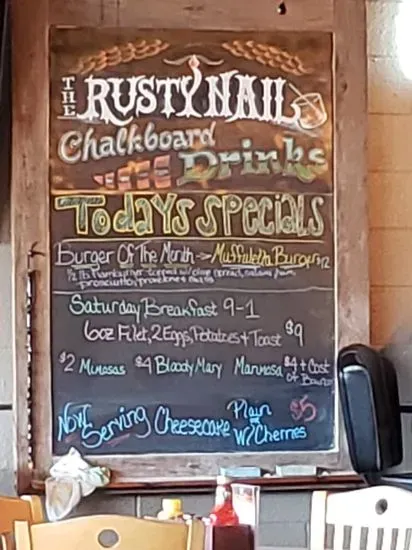 THE RUSTY NAIL
Chalkboard
Drinks
Todays Specials
Burger Of The Month → Muffuletta Burger 12
1/2 lb Hamburger topped w/ olive spread, salami, ham,
prosciutto, provolone +
Saturday Breakfast 9-1
6oz Filet, 2 Eggs, Potatoes + Toast $9
$2 Mimosas $4 Bloody Mary Manmosa $4 + Cost
of
Now Serving Cheesecake Plain $5
w/Cherries